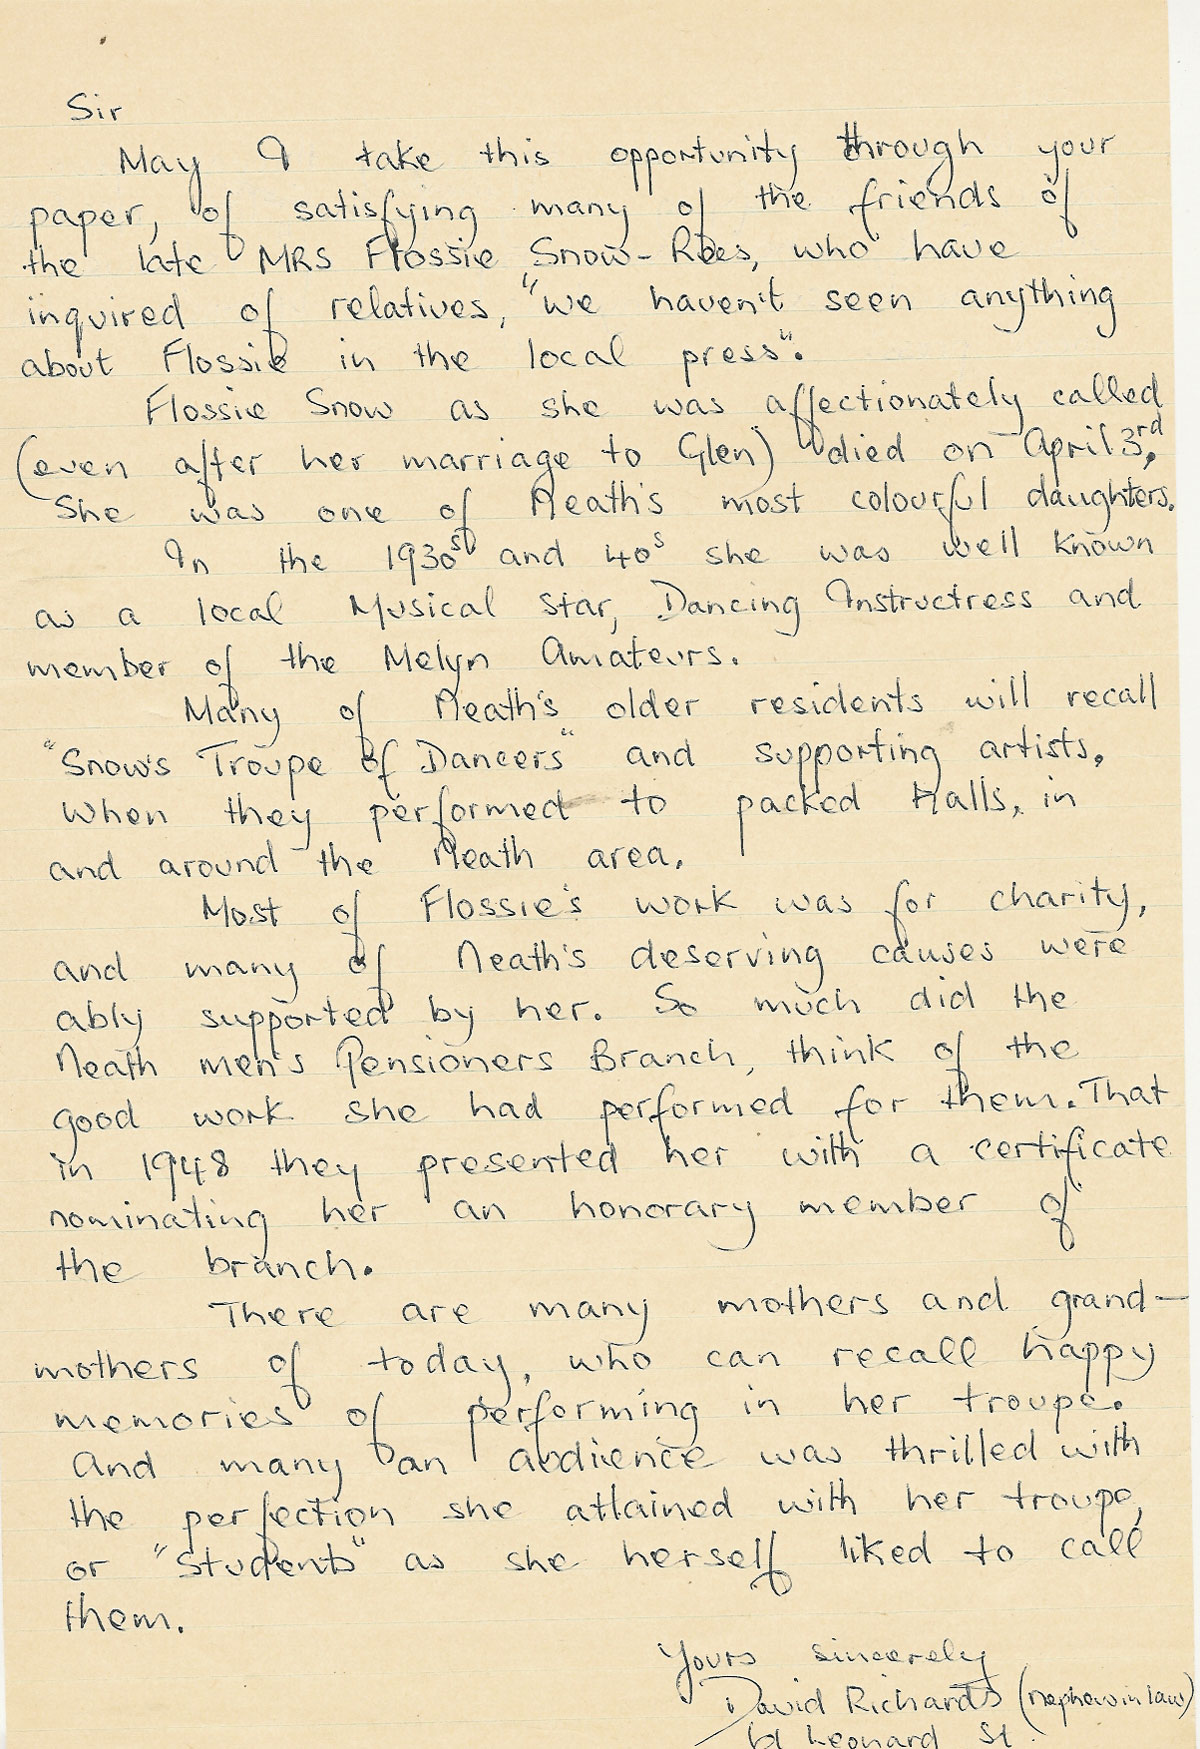 Sir
May I take this opportunity through your
paper, of satisfying many of the friends of
the late MRS Flossie Snow-Rees, who have
inquired of relatives, "we haven't seen anything
about Flossie in the local press".
Flossie Snow as she was affectionately called
(even after her marriage to Glen) died on April 3rd,
She was one of Neath's most colourful daughters.
In the 1930s and 40s she was well known
as a local Musical star, Dancing Instructress and
member of the Melyn Amateurs.
Many of Neath's older residents will recall
"Snow's Troupe of Dancers" and supporting artists,
when they performed to packed Halls, in
and around the Neath area.
Most of Flossie's work was for charity,
and many of Neath's deserving causes were
ably supported by her. So much did the
Neath men's Pensioners Branch, think of the
good work she had performed for them. That
in 1948 they presented her with a certificate
nominating her an honorary member of
the branch.
There are many mothers and grand-
mothers of today, who can recall happy
memories of performing in her troupe.
And many an audience was thrilled with
the perfection she attained with her troupe,
or "Students" as she herself liked to call
them.
Yours sincerely
David Richards (nephew in law)
Leonard St.